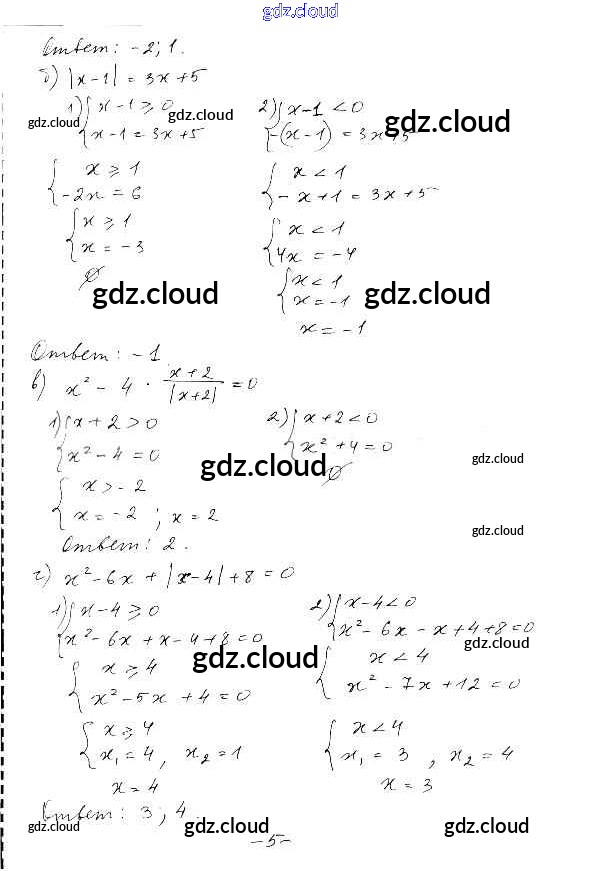 gdz.cloud
Ответ: -2; 1.
б) |x-1| = 3x+5
1) { x-1 ≥ 0
x-1 = 3x+5
2) { x-1 < 0
-(x-1) = 3x+5
gdz.cloud
gdz.cloud
gdz.cloud
{ x ≥ 1
-2x = 6
{ x < 1
-x+1 = 3x+5
{ x ≥ 1
x = -3
{ x < 1
4x = -4
∅
{ x < 1
x = -1
gdz.cloud
gdz.cloud
x = -1
Ответ: -1
в) x² - 4 · x+2 / |x+2| = 0
1) { x+2 > 0
x² - 4 = 0
2) { x+2 < 0
x² + 4 = 0
∅
gdz.cloud
gdz.cloud
{ x > -2
x = -2 ; x = 2
gdz.cloud
Ответ: 2.
г) x² - 6x + |x-4| + 8 = 0
1) { x-4 ≥ 0
x² - 6x + x - 4 + 8 = 0
2) { x-4 < 0
x² - 6x - x + 4 + 8 = 0
gdz.cloud
gdz.cloud
{ x ≥ 4
x² - 5x + 4 = 0
{ x < 4
x² - 7x + 12 = 0
{ x ≥ 4
x₁ = 4, x₂ = 1
{ x < 4
x₁ = 3, x₂ = 4
x = 4
x = 3
Ответ: 3; 4.
gdz.cloud
gdz.cloud
gdz.cloud
-5-